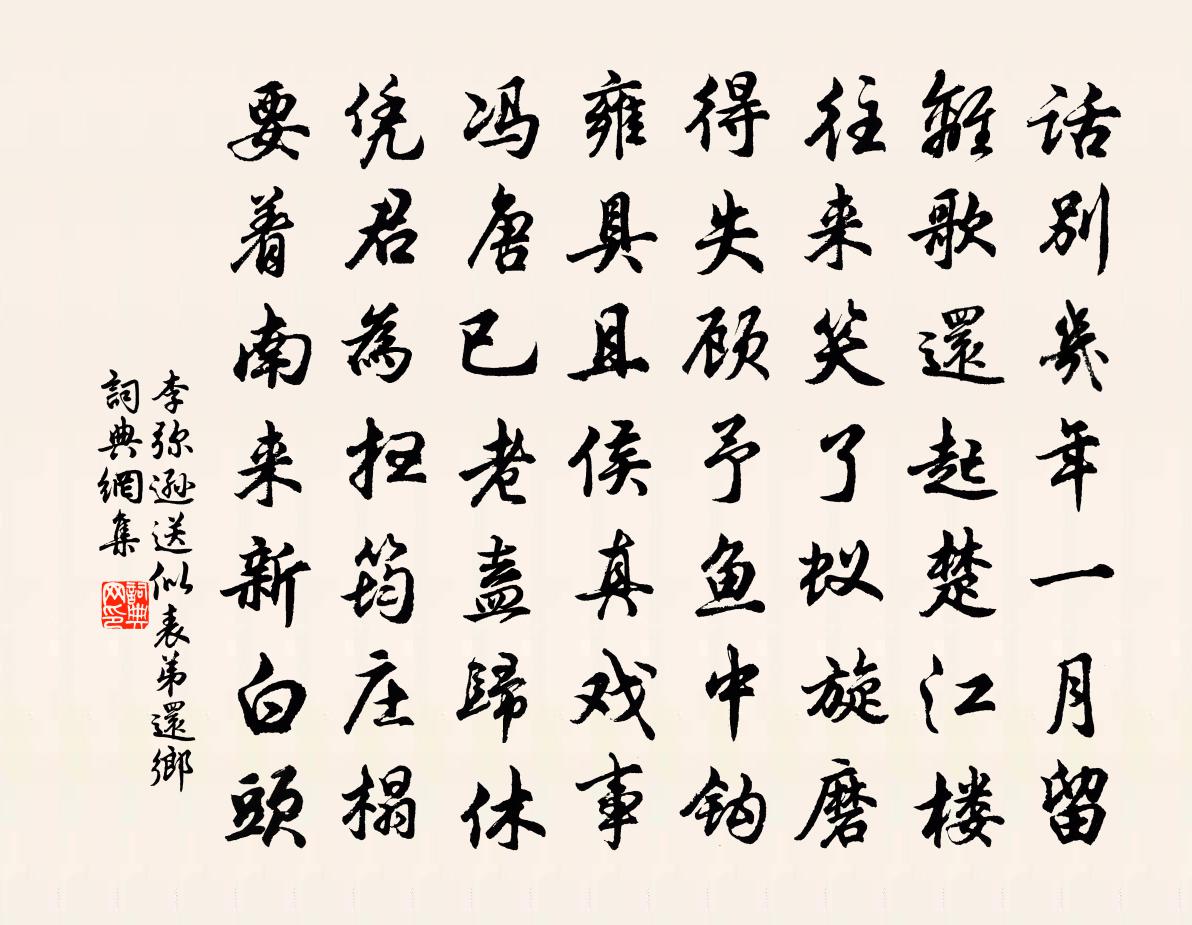 话别幾年一月留
離歌還起楚江楼
往来笑了蚁旋磨
得失顾予鱼中钩
雍具且侯真戏事
冯唐已老盍歸休
凭君為扫筠庄榻
要着南来新白頭
李弥逊送似表弟還鄉
詞典網集
詞典网印